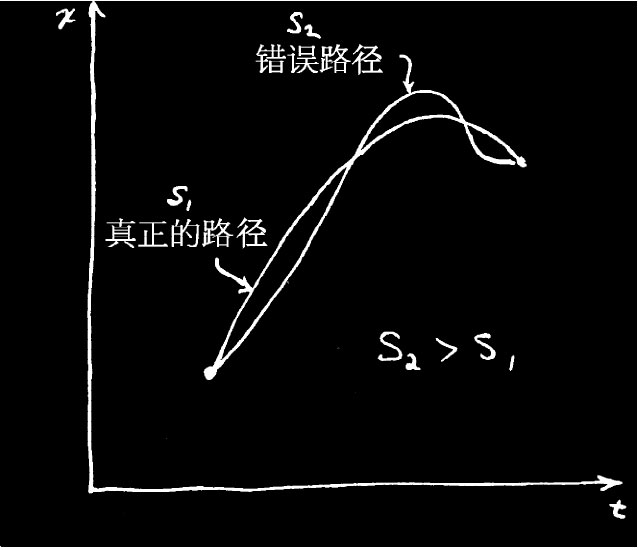 x
S₂
错误路径
S₁
真正的路径
S₂ > S₁
t